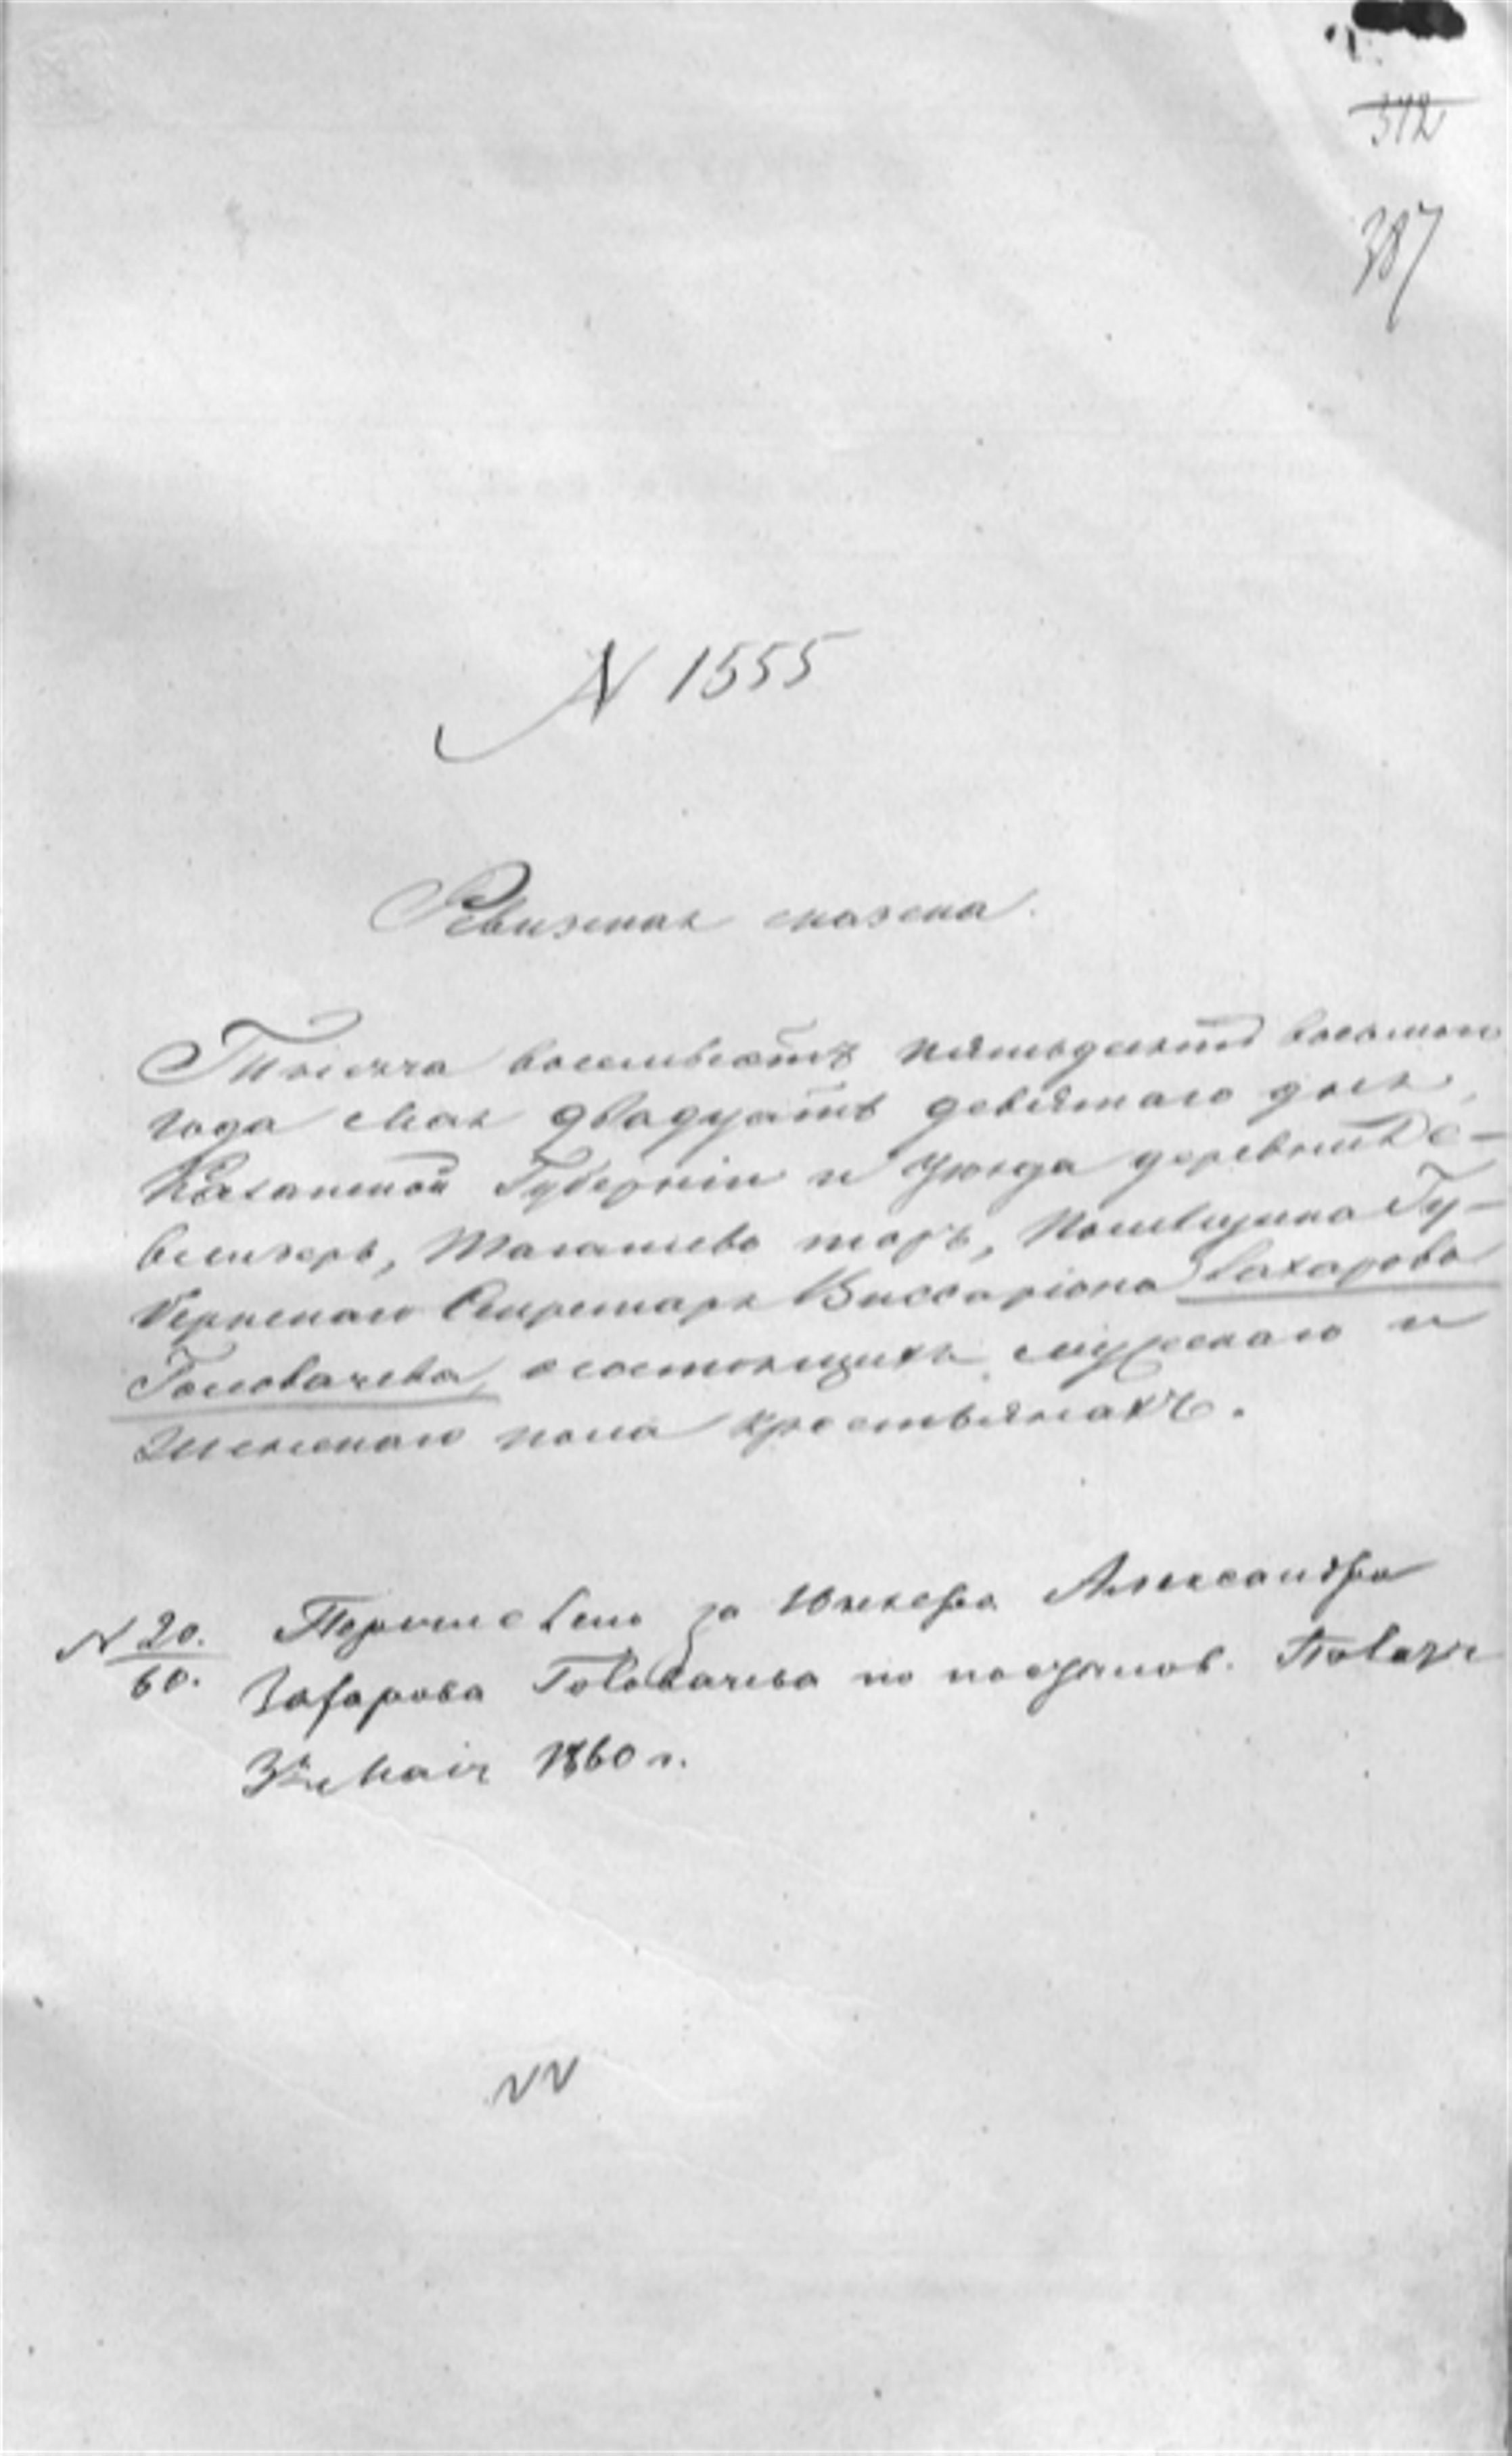 372
387
N 1555
Ревизская сказка.
Тысяча восемьсотъ пятьдесятъ восьмого
года Мая двадцать девятаго дня,
Казанской Губерніи и Уѣзда деревни
тожъ, Помѣщика Гу-
бернскаго Секретаря Виссаріона Захарова
Головачева, о состоящихъ мужскаго и
женскаго пола крестьянахъ.
N 20. Перечислено за Юнкера Александра
60. Захарова Головачева по постанов. Палаты
Мая 1860 г.